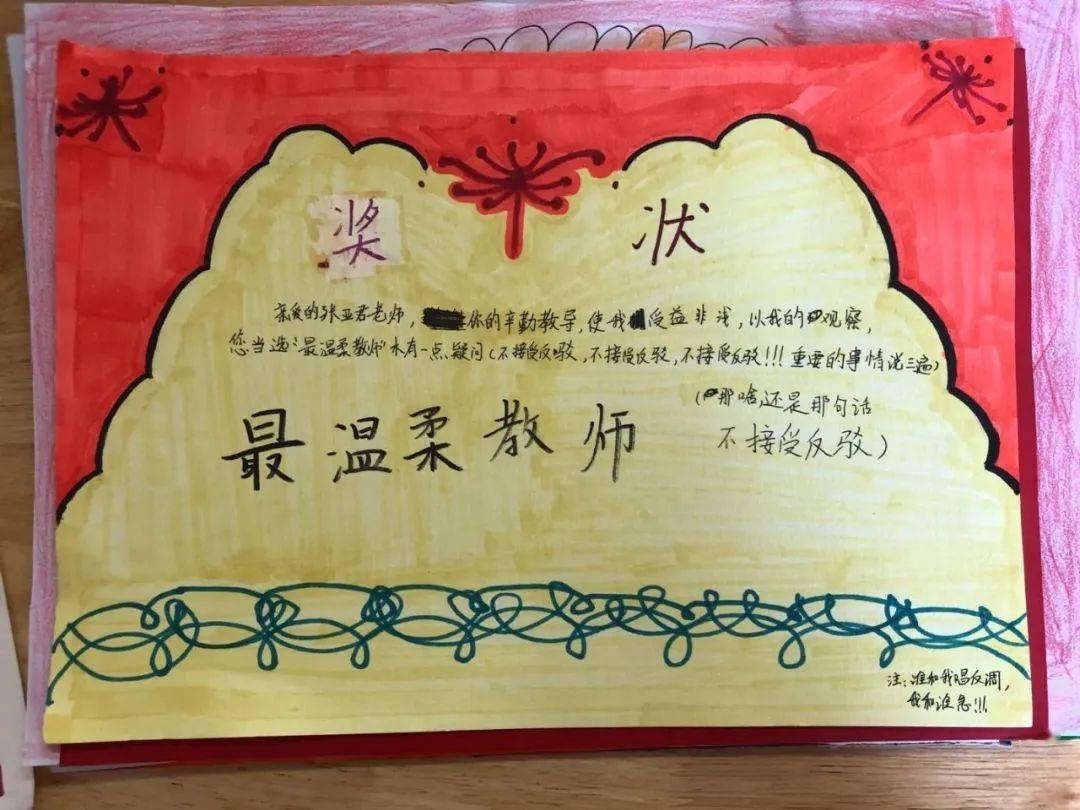 奖 状
亲爱的张亚君老师，你的辛勤教导，使我受益非浅，以我的观察，
您当选“最温柔教师”木有一点疑问（不接受反驳，不接受反驳，不接受反驳！！！重要的事情说三遍）
（那啥，还是那句话
不接受反驳）
最温柔教师
注：谁和我唱反调，
我和谁急！！！